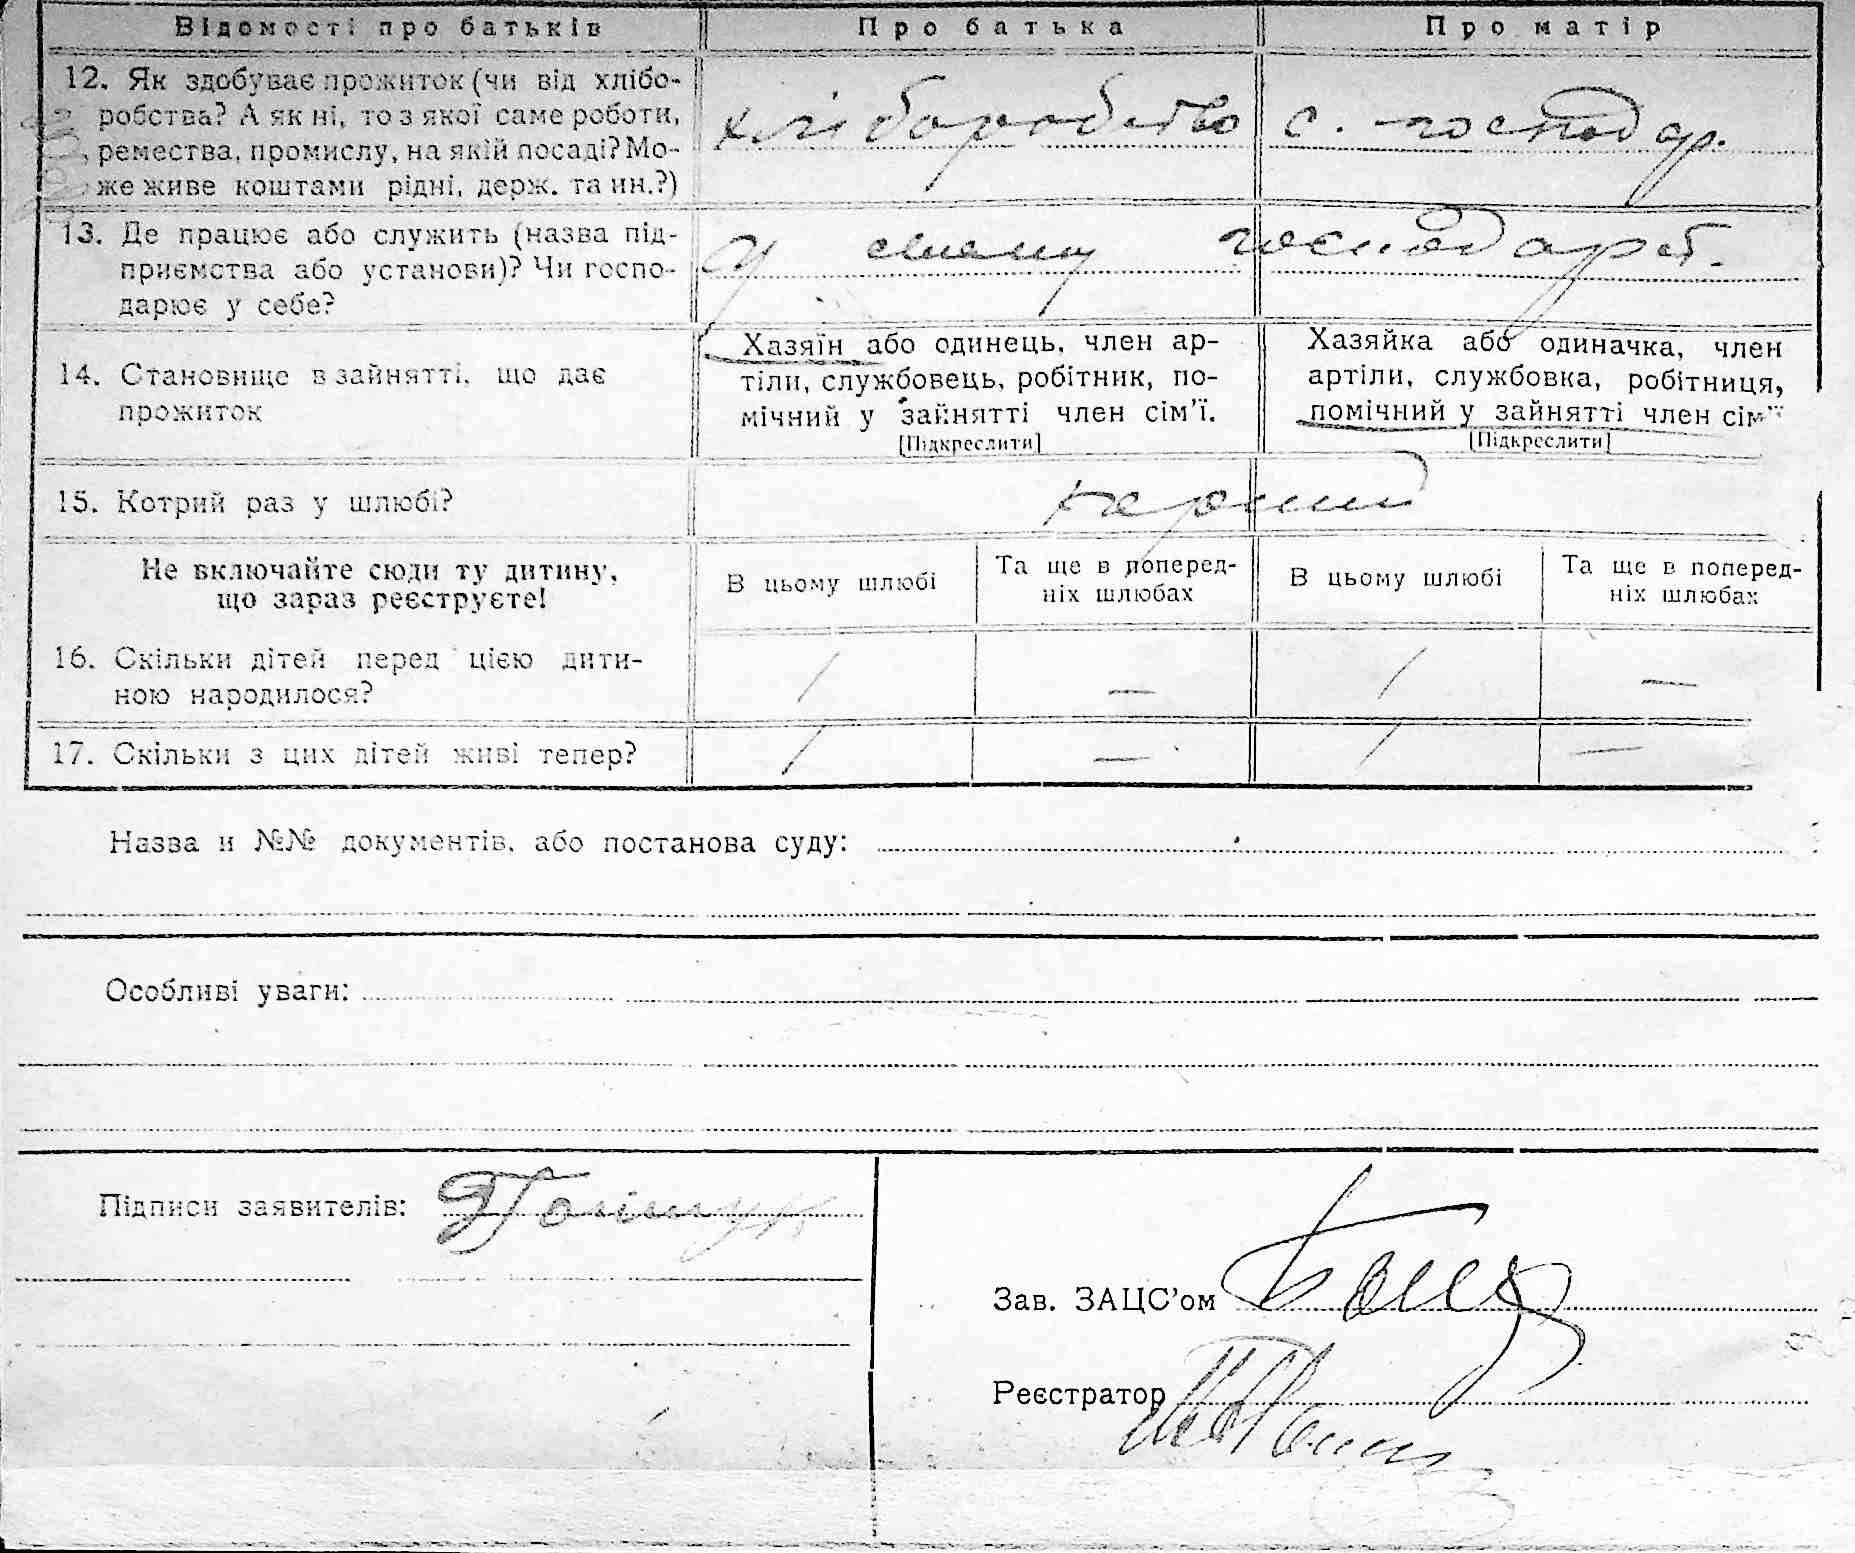 Відомості про батьків Про батька Про матір
12. Як здобуває прожиток (чи від хлібо-
робства? А як ні, то з якої саме роботи,
ремества, промислу, на якій посаді? Мо-
же живе коштами рідні, держ. та ин.?)
хліборобство с. господар.
13. Де працює або служить (назва під-
приємства або установи)? Чи госпо-
дарює у себе?
у своему господарст.
14. Становище в зайнятті, що дає
прожиток
Хазяїн або одинець, член ар-
тіли, службовець, робітник, по-
мічний у зайнятті член сім’ї.
[Підкреслити]
Хазяйка або одиначка, член
артіли, службовка, робітниця,
помічний у зайнятті член сім’ї
[Підкреслити]
15. Котрий раз у шлюбі?
перший
Не включайте сюди ту дитину,
що зараз реєструєте!
В цьому шлюбі
Та ще в поперед-
ніх шлюбах
В цьому шлюбі
Та ще в поперед-
ніх шлюбах
16. Скільки дітей перед цією дити-
ною народилося?
1 — 1 —
17. Скільки з цих дітей живі тепер? 1 — 1 —
Назва и №№ документів, або постанова суду:
Особливі уваги:
Підписи заявителів: Поліщук
Зав. ЗАЦС’ом
Реєстратор